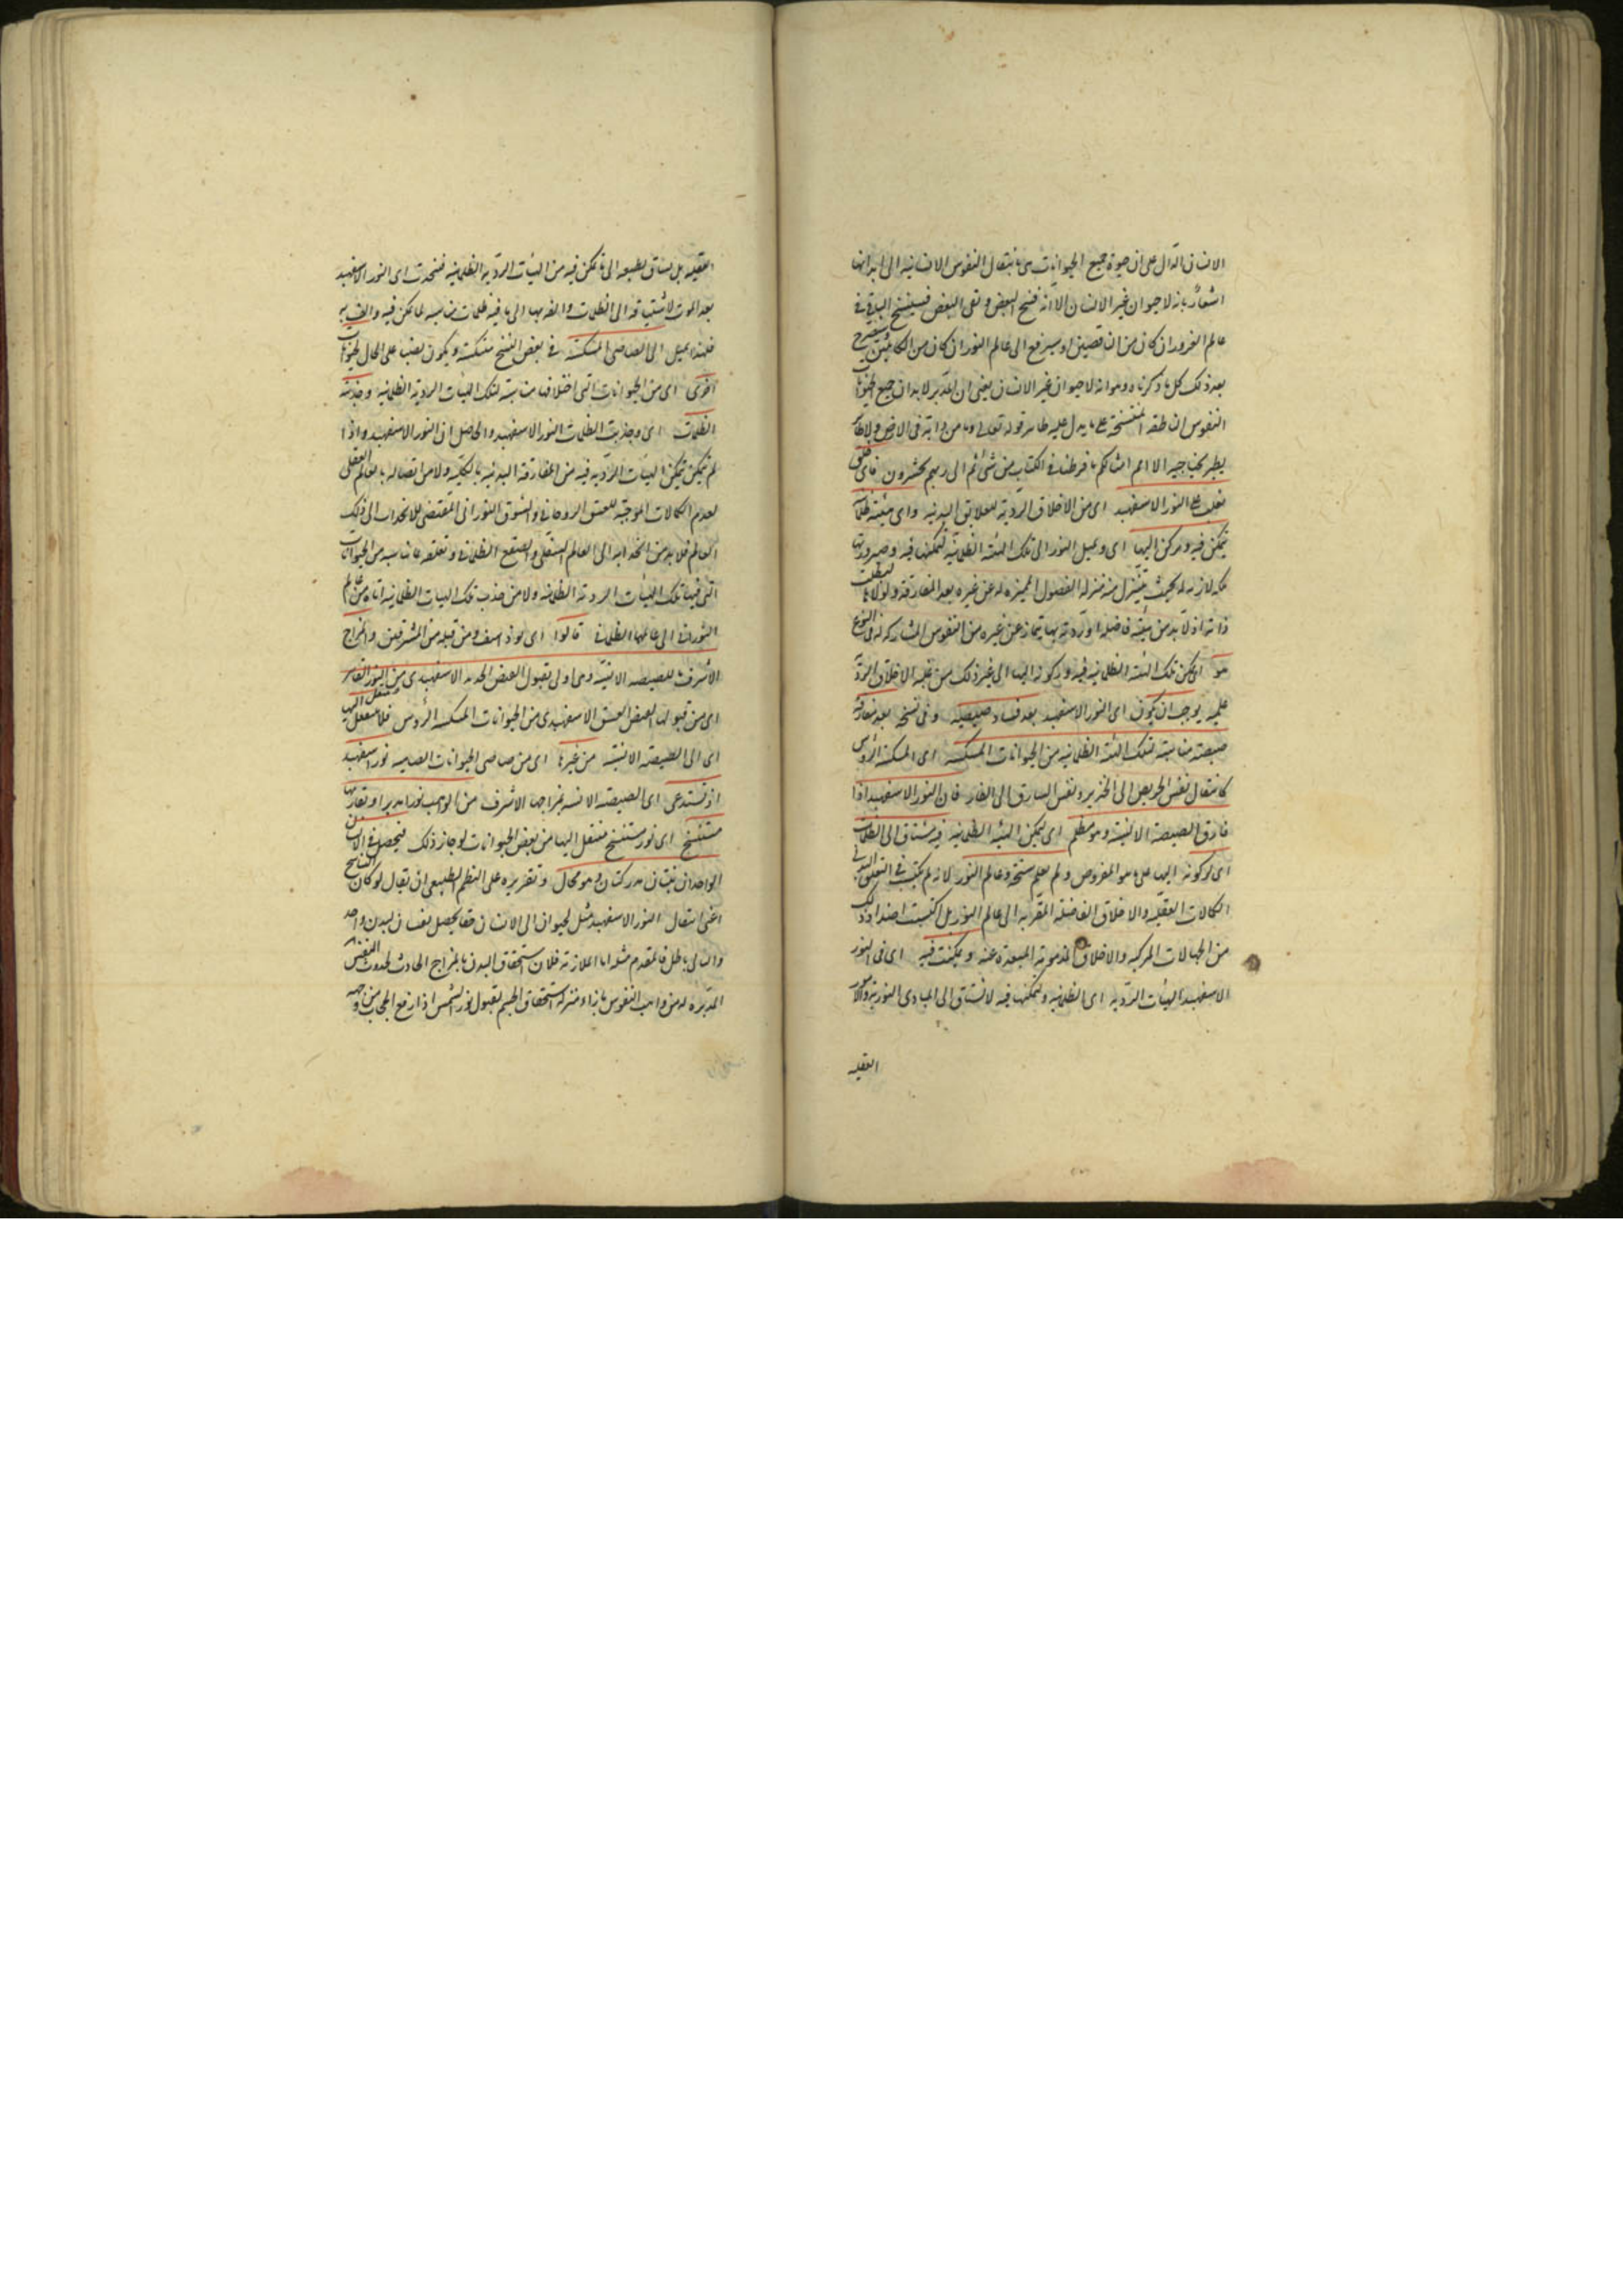 الانسان الدال على ان حيوة جميع الحيوانات هى بانتقال النفوس الانسانية الى ابدانها
اشعار بانه لا حيوان غير الانسان الا انه نسخ البعض وبقى البعض فسينسخ الباقى فى
عالم الغرور ان كان من الناقصين او سيرفع الى عالم النور ان كان من الكاملين وسنصرح
بعد ذلك كل ما ذكرناه وهو انه لا حيوان غير الانسان يعنى ان المدبر لابدان جميع الحيوانات
النفوس الناطقة المتنسخة على ما يدل عليه ظاهر قوله تعالى وما من دابة فى الارض ولا طائر
يطير بجناحيه الا امم امثالكم ما فرطنا فى الكتاب من شئ ثم الى ربهم يحشرون فاى خلق
يغلب على النور الاسفهبد اى من الاخلاق الردية للعلايق البدنية واى هيئة ظلمانية
تتمكن فيه ويركن اليها اى ويميل النور الى تلك الهيئة الظلمانية لتمكنها فيه وصيرورتها
ملكة لازمة له بحيث يتنزل منه منزلة الفصول المميزة له عن غيره بعد المفارقة ولولاها لبطلت
ذاته اذ لا بد من هيئة فاضلة او ردية بها يمتاز عن غيره من النفوس المشاركة له فى النوع
هو اى تمكن تلك الهيئة الظلمانية فيه وركونه اليها الى غير ذلك من غلبة الاخلاق الردية
عليه يوجب ان يكون اى النور الاسفهبد بعد فساد صيصيته وفى نسخة بعد مفارقة
صيصيته مناسبة لتلك الهيئة الظلمانية من الحيوانات المنتكسة اى المنتكسة الرؤس
كانتقال نفس الحريص الى الخنزير ونفس السارق الى الفار فان النور الاسفهبد اذا
فارق الصيصية الانسية وهو مظلم اى لتمكن الهيئة الظلمانية فيه مشتاق الى الظلمات
اى لركونه اليها على ما هو المفروض ولم يعلم سنخه وعالم النور لانه لم يكتسب فى التعلق البدنى
الكمالات العقلية والاخلاق الفاضلة المقربة الى عالم النور بل اكتسبت اضداد ذلك
من الجهالات المركبة والاخلاق المذمومة المبعدة عنه وتمكنت فيه اى فى النور
الاسفهبد الهيئات الردية اى الظلمانية ولتمكنها فيه لا يشتاق الى المبادى النورية والامور
العقلية
العقلية بل يشتاق بطبعه الى ما تمكن فيه من الهيئات الردية الظلمانية فينجذب اى النور الاسفهبد
بعد الموت لاشتياقه الى الظلمات والقربها الى ما فيه ظلمات مناسبة لما تمكن فيه
فلهذا يميل الى الصياصى المنتكسة فى بعض النسخ منتكسة ويكون نصب على الحال لحيوانات
اخرى اى من الحيوانات التى اخلاقها مناسبة لتلك الهيئات الردية الظلمانية وجذبته
الظلمات اى وجذبت الظلمات النور الاسفهبد والحاصل ان النور الاسفهبد اذا
لم يتمكن لتمكن الهيئات الردية فيه من المفارقة البدنية بالكلية ولا من اتصاله بالعالم العقلى
لعدم الكمالات الموجبة للعشق الروحانى والشوق النورانى المقتضى للانجذاب الى ذلك
العالم فلا بد من انجذابه الى العالم السفلى والصقع الظلمانى وتعلقه بما يناسبه من الحيوانات
التى فيها تلك الهيئات الردية الظلمانية ولا من جذب تلك الهيئات الظلمانية اياه من عالم
النورانى الى عالمها الظلمانى قالوا اى بوذاسف ومن قبله من المشرقيين والمزاج
الاشرف للصيصية الانسية وهى اولى بقبول الفيض الجديد الاسفهبدى من النور القاهر
اى من قبولها الفيض العتيق الاسفهبدى من الحيوانات المنتكسة الرؤس فلا ينتقل اليها
اى الى الصيصية الانسية من غيرها اى من صياصى الحيوانات الصامتة نور اسفهبد
اذ تستدعى اى الصيصية الانسية بمزاجها الاشرف من الواهب نورا مدبرا ويقارنها
مستنسخ اى نور مستنسخ منتقل اليها من بعض الحيوانات لو جاز ذلك فيحصل فى الانسان
الواحد انيتان مدركتان وهو محال وتقريره على النظم الطبيعى ان يقال لو كان التناسخ
اعنى انتقال النور الاسفهبد مثل لحيوان الى الانسان حقا لحصل نفسان لبدن واحد
والتالى باطل فالمقدم مثله اما الملازمة فلان استحقاق البدن بالمزاج الحادث لحدوث النفس
المدبرة له من واهب النفوس بازاء منزلة استحقاق الجسم لقبول نور الشمس اذا ارتفع الحجاب من وجهه